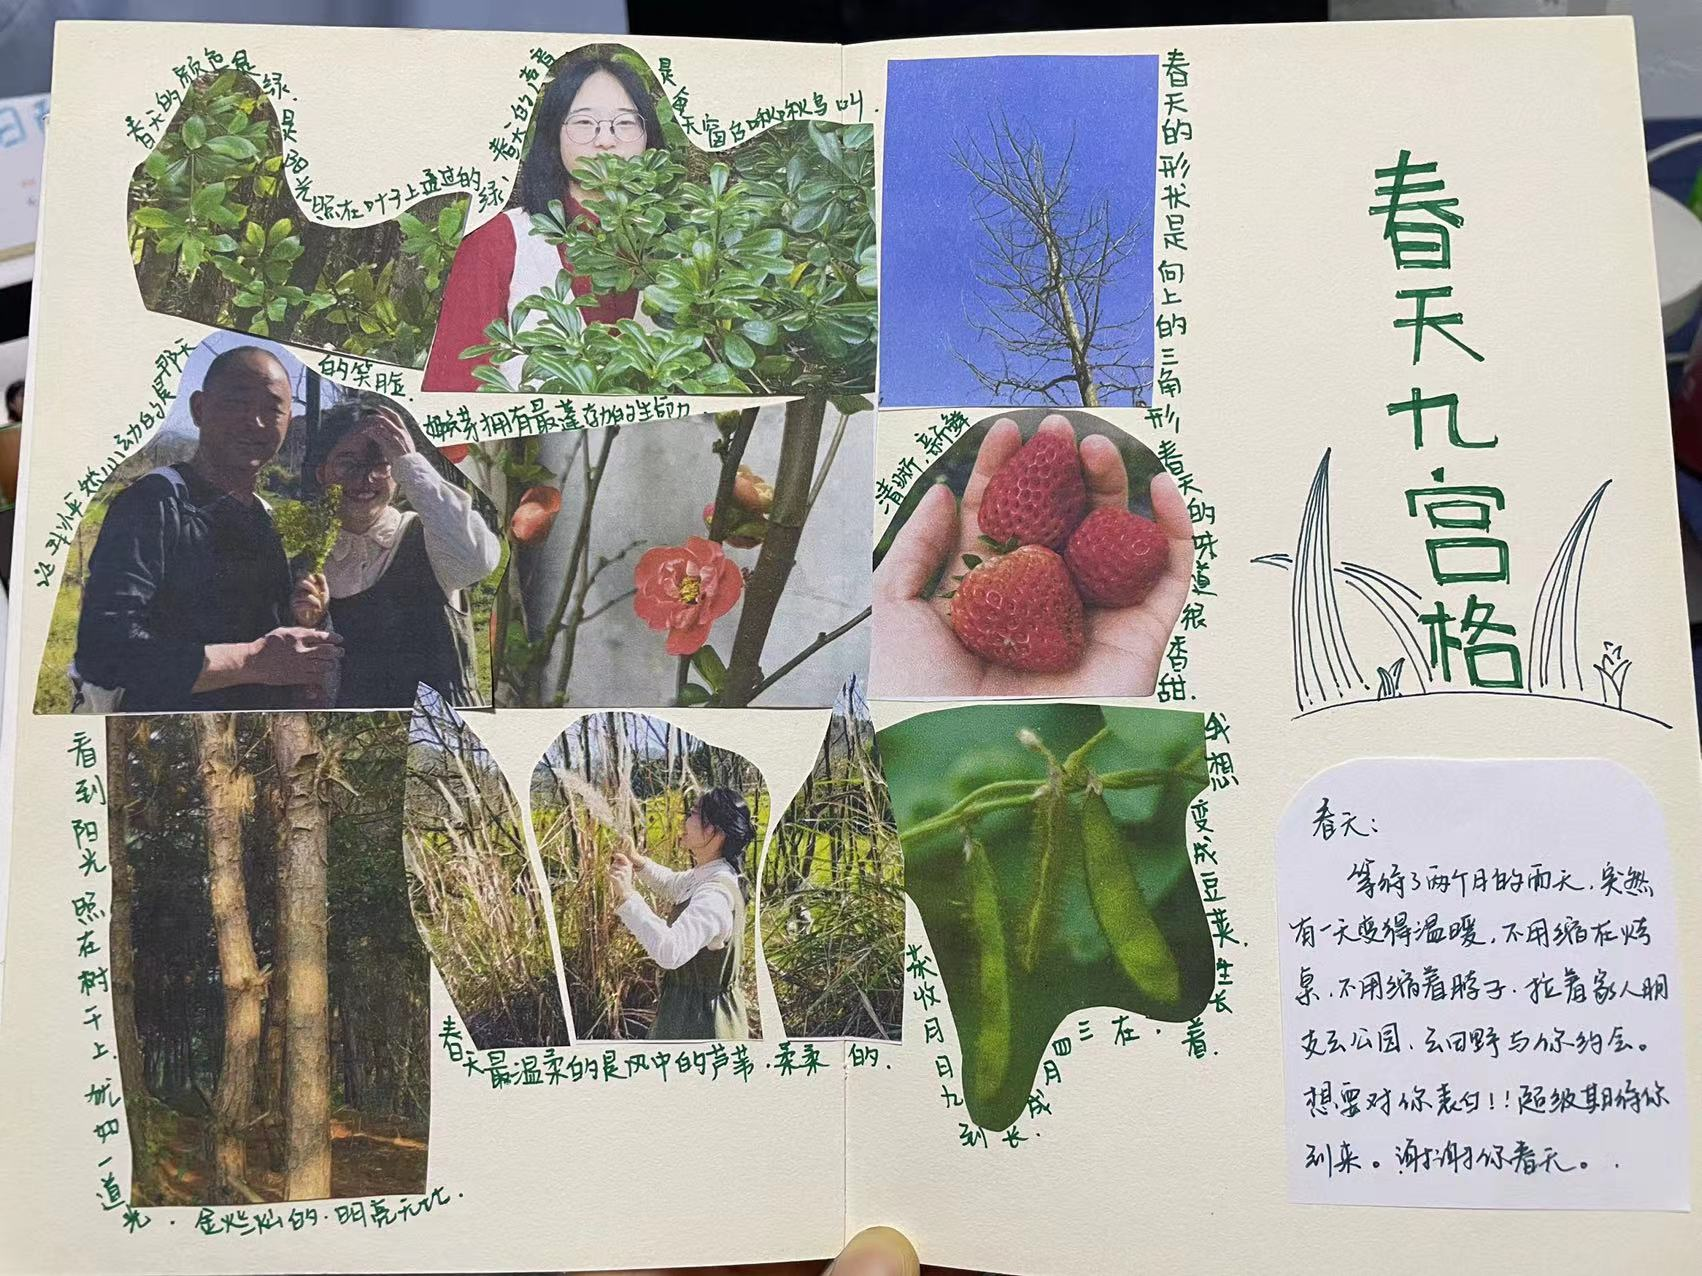 春天的颜色是绿.是阳光照在叶子上透过的绿.
春天的声音是每天窗台啾啾鸟叫.
春天的形状是向上的三角形
春天九宫格
的笑脸.
嫩芽拥有最蓬勃的生命力.
清晰.新鲜
春天的味道很香甜.
看到阳光照在树干上.犹如一道光.金灿灿的.明亮无比.
春天最温柔的是风中的芦苇.柔柔的.
我想变成豆荚.生长着.在三四月成长.到九月日收获
春天:
等待了两个月的雨天.突然
有一天变得温暖.不用缩在烤
桌.不用缩着脖子.拉着家人朋
友去公园.去田野与你约会。
想要对你表白!!超级期待你
到来。谢谢你春天。